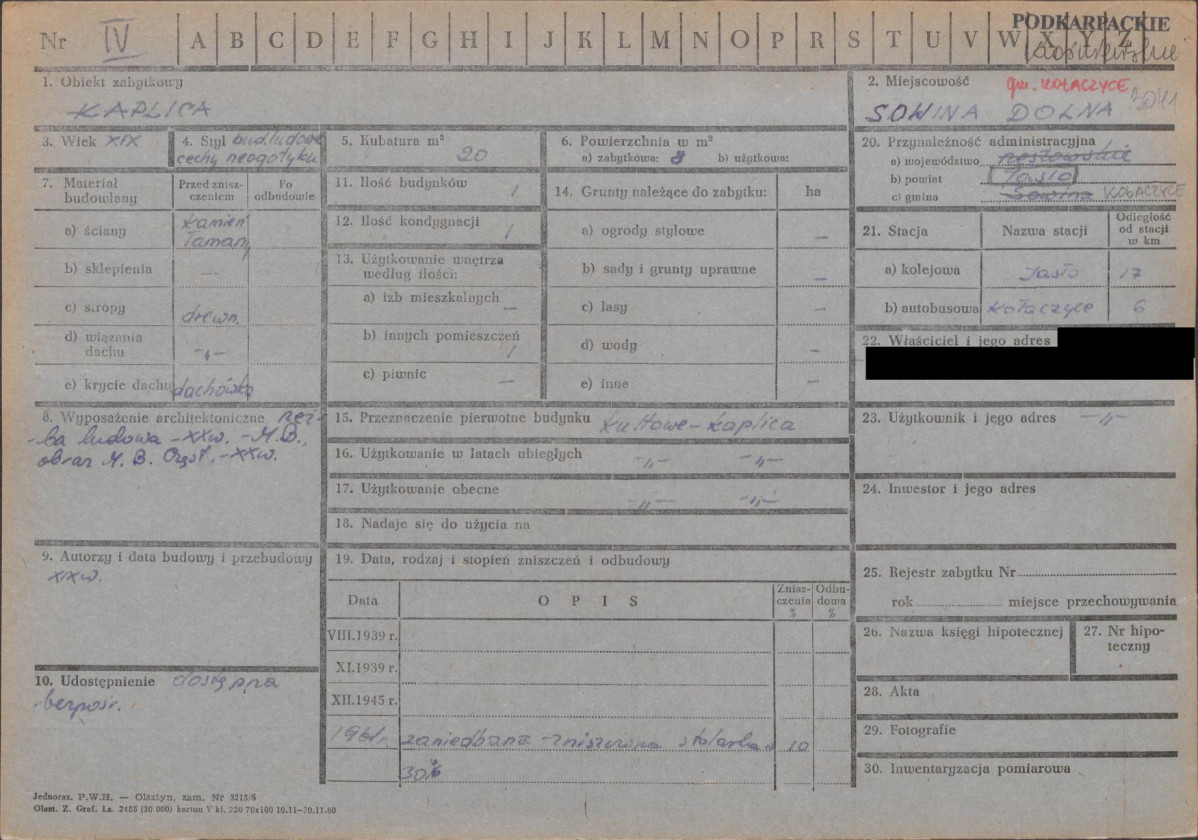 PODKARPACKIE
Nr IV A B C D E F G H I J K L M N O P R S T U V W X Y Z
1. Obiekt zabytkowy
KAPLICA
2. Miejscowość gm. KOŁACZYCE
SOWINA DOLNA
3. Wiek XIX
4. Styl bud. ludowe
cechy neogotyku
5. Kubatura m³
20
6. Powierzchnia w m²
a) zabytkowa: 8 b) użytkowa:
7. Materiał budowlany
Przed zniszczeniem
Po odbudowie
a) ściany kamień
łamany
b) sklepienia —
c) stropy drewn.
d) wiązania dachu -„-
e) krycie dachu dachówka
8. Wyposażenie architektoniczne rzeź-
ba ludowa - XXw. - M.B.,
obraz M. B. Częst. - XXw.
9. Autorzy i data budowy i przebudowy
XIXw.
10. Udostępnienie dostępna
bezpośr.
11. Ilość budynków 1
12. Ilość kondygnacji 1
13. Użytkowanie wnętrza
według ilości:
a) izb mieszkalnych —
b) innych pomieszczeń 1
c) piwnic —
14. Grunty należące do zabytku: ha
a) ogrody stylowe —
b) sady i grunty uprawne —
c) lasy —
d) wody —
e) inne —
15. Przeznaczenie pierwotne budynku kultowe - kaplica
16. Użytkowanie w latach ubiegłych -„- -„-
17. Użytkowanie obecne -„- -„-
18. Nadaje się do użycia na
19. Data, rodzaj i stopień zniszczeń i odbudowy
Data OPIS Zniszczenia % Odbudowa %
VIII.1939 r.
XI.1939 r.
XII.1945 r.
1961r. zaniedbana - zniszczona stolarka 10
30%
20. Przynależność administracyjna
a) województwo rzeszowskie
b) powiat Jasło
c) gmina Sowina KOŁACZYCE
21. Stacja Nazwa stacji Odległość od stacji w km
a) kolejowa Jasło 17
b) autobusowa Kołaczyce 6
22. Właściciel i jego adres
23. Użytkownik i jego adres -„-
24. Inwestor i jego adres
25. Rejestr zabytku Nr
rok miejsce przechowywania
26. Nazwa księgi hipotecznej
27. Nr hipo-
teczny
28. Akta
29. Fotografie
30. Inwentaryzacja pomiarowa
Jednoraz. P.W.H. — Olsztyn, zam. Nr 3215/S
Olszt. Z. Graf. Lz. 2485 (30 000) karton V kl. 220 70x100 10.11—20.11.60